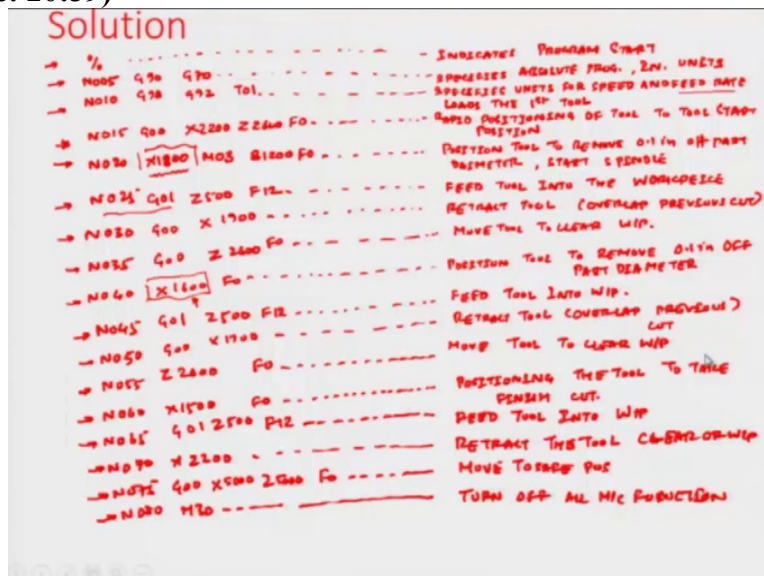 Solution
% INDICATES PROGRAM START
N005 G90 G70 SPECIFIES ABSOLUTE PROG., IN. UNITS
N010 G98 G92 T01 SPECIFIES UNITS FOR SPEED AND FEED RATE
LOADS THE 1ST TOOL
N015 G00 X2200 Z2600 F0 RAPID POSITIONING OF TOOL TO TOOL START
POSITION
N020 X1800 M03 S1200 F0 POSITION TOOL TO REMOVE 0.1 in OFF PART
DIAMETER, START SPINDLE
N025 G01 Z500 F12 FEED TOOL INTO THE WORKPEICE
N030 G00 X1900 RETRACT TOOL (OVERLAP PREVIOUS CUT)
N035 G00 Z2600 F0 MOVE TOOL TO CLEAR W/P.
N040 X1600 F0 POSITION TOOL TO REMOVE 0.1 in OFF
PART DIAMETER
N045 G01 Z500 F12 FEED TOOL INTO W/P.
N050 G00 X1700 RETRACT TOOL (OVERLAP PREVIOUS)
CUT
N055 Z2600 F0 MOVE TOOL TO CLEAR W/P
N060 X1500 F0 POSITIONING THE TOOL TO TAKE
FINISH CUT.
N065 G01 Z500 F12 FEED TOOL INTO W/P
N070 X2200 RETRACT THE TOOL CLEAR OF W/P
N075 G00 X5000 F0 MOVE TO SAFE POS
N080 M30 TURN OFF ALL M/C FUNCTION